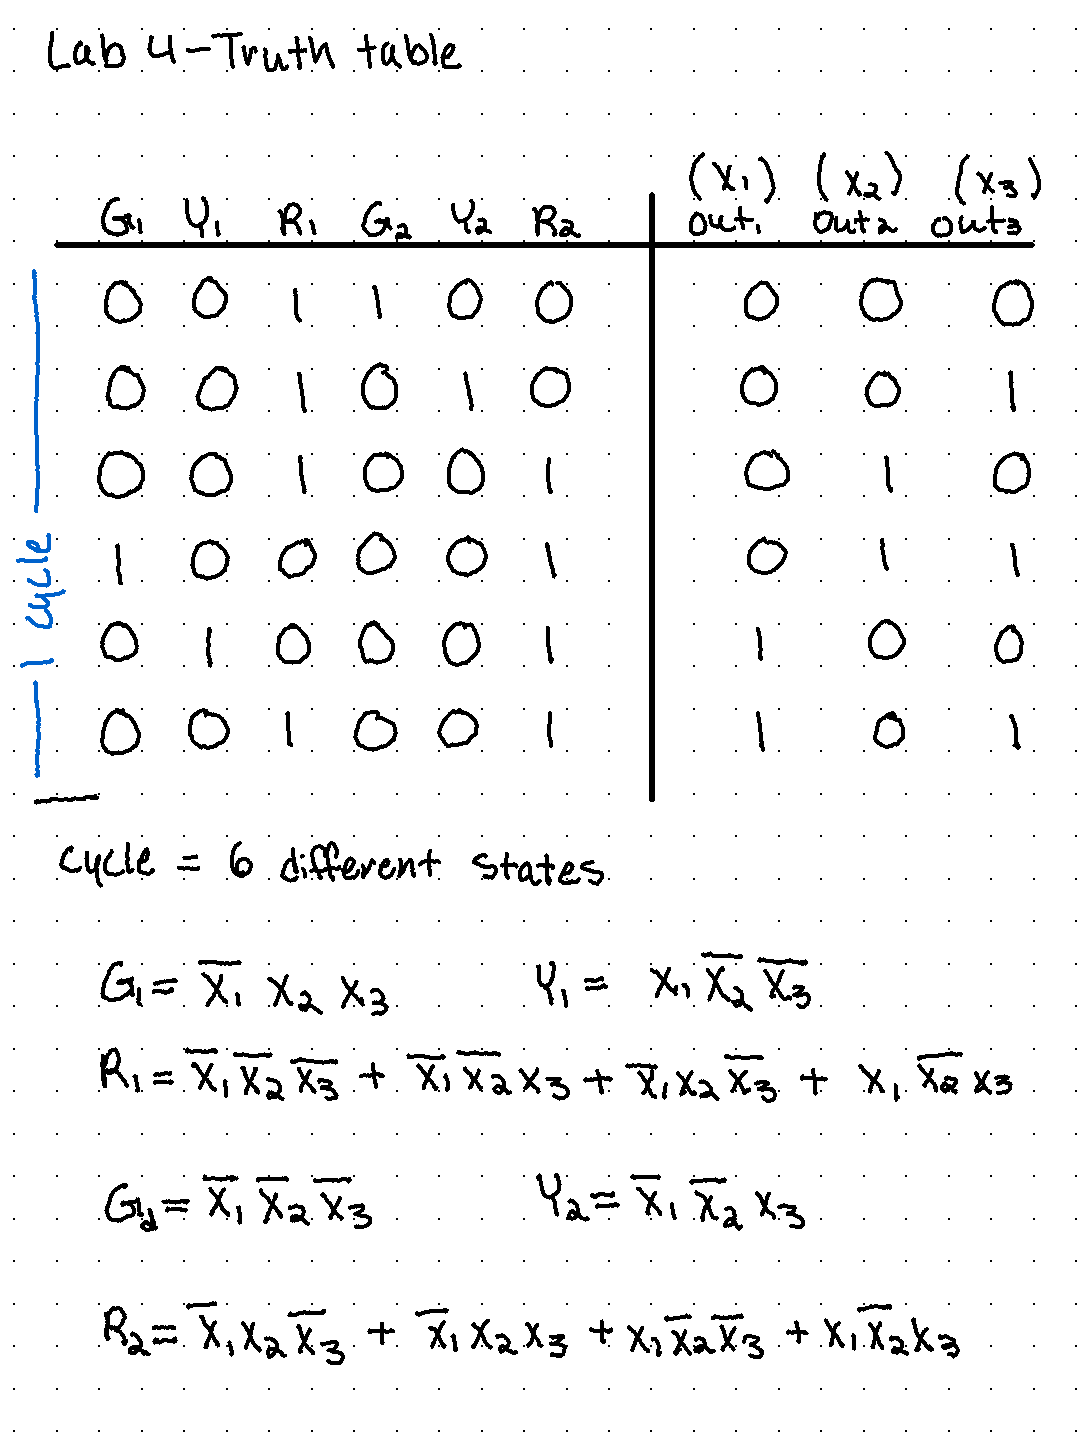 Lab 4-Truth table
(X₁) (X₂) (X₃)
G₁ Y₁ R₁ G₂ Y₂ R₂ out₁ out₂ out₃
0 0 1 1 0 0 0 0 0
0 0 1 0 1 0 0 0 1
0 0 1 0 0 1 0 1 0
1 0 0 0 0 1 0 1 1
0 1 0 0 0 1 1 0 0
0 0 1 0 0 1 1 0 1
1 cycle
cycle = 6 different states
G₁ = X̅₁ X₂ X₃ Y₁ = X₁ X̅₂ X̅₃
R₁ = X̅₁ X̅₂ X̅₃ + X̅₁ X̅₂ X₃ + X̅₁ X₂ X̅₃ + X₁ X̅₂ X₃
G₂ = X̅₁ X̅₂ X̅₃ Y₂ = X̅₁ X̅₂ X₃
R₂ = X̅₁ X₂ X̅₃ + X̅₁ X₂ X₃ + X₁ X̅₂ X̅₃ + X₁ X̅₂ X₃